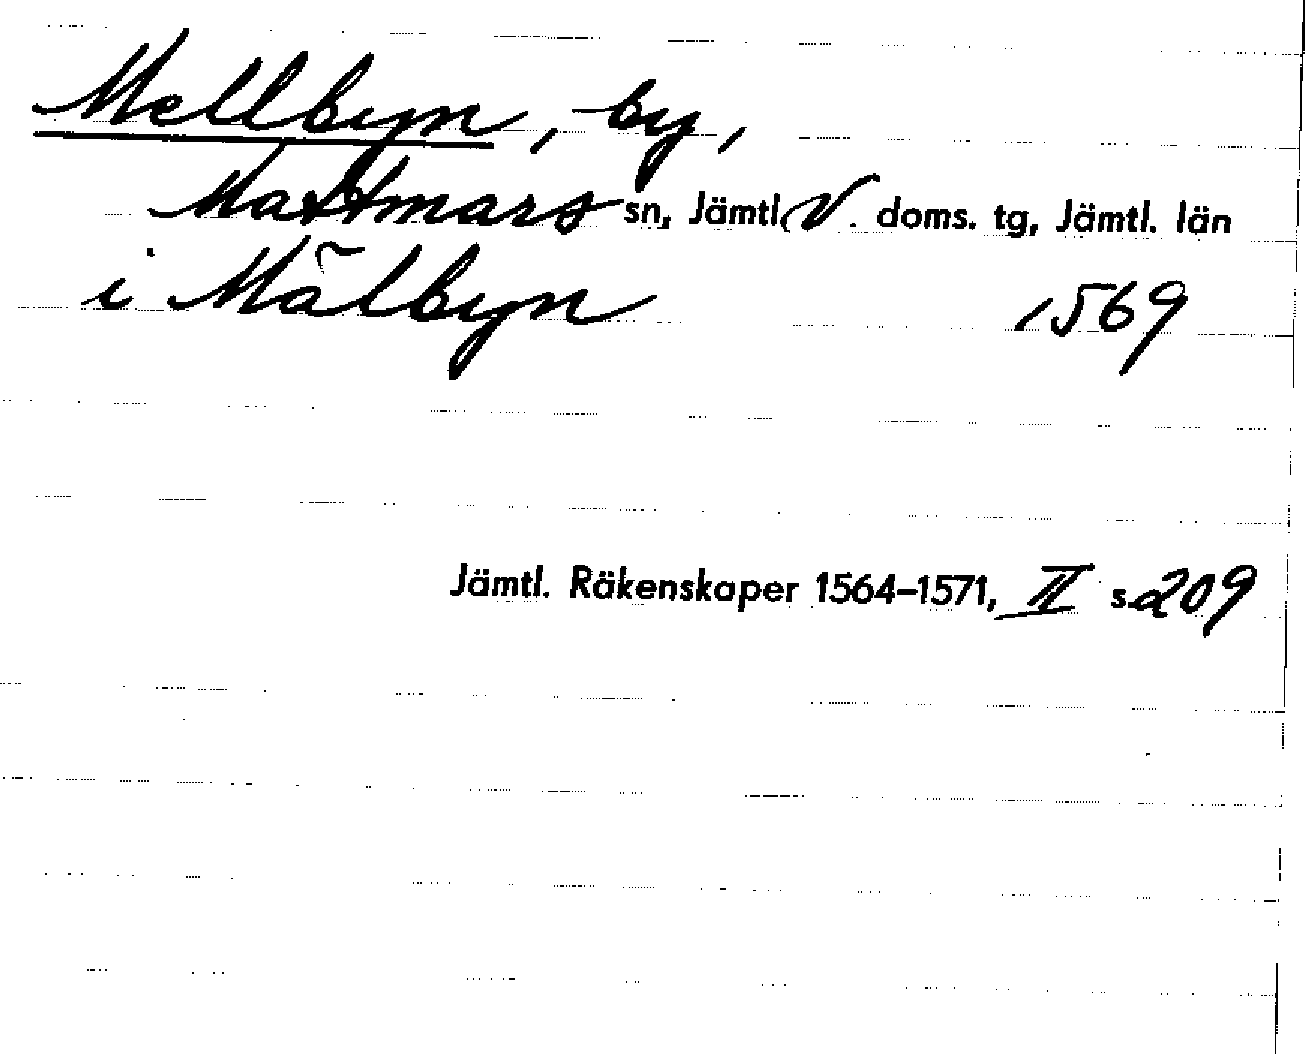 Mellbyn, by,
Mattmars sn, Jämtl. V. doms. tg, Jämtl. län
i Mãlbyn 1569
Jämtl. Räkenskaper 1564–1571, II s. 209